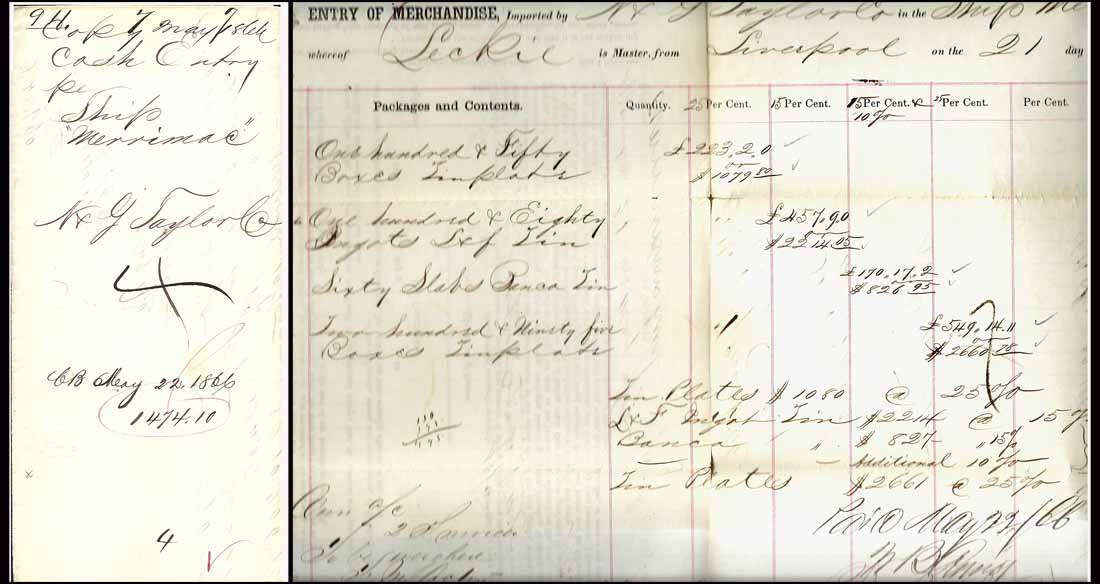 9th Copy May 7 1866
Cash Entry
pe
Ship
"Merrimac"
N & G Taylor Co
CB May 22. 1866
1474.10
4
ENTRY OF MERCHANDISE, Imported by N & G Taylor Co in the Ship Me
whereof Leckie is Master, from Liverpool on the 21 day
Packages and Contents. Quantity. 25 Per Cent. 15 Per Cent. 15 Per Cent. & 10% 25 Per Cent. Per Cent.
One hundred & Fifty £223.2.0
or
Boxes Tinplate $1079 80
One hundred & Eighty £457.9.0
or
Ingots L&F Tin $2214.05
£170.17.2
or
Sixty Slabs Banca Tin $826 95
Two hundred & Ninety five £549.14.11
or
Boxes Tinplate $2660 78
Tin Plates $1080 @ 25%
L&F Ingot Tin $2214 @ 15%
Banca " $827 " 15%
Additional 10%
Tin Plates $2661 @ 25%
Paid May 22/66